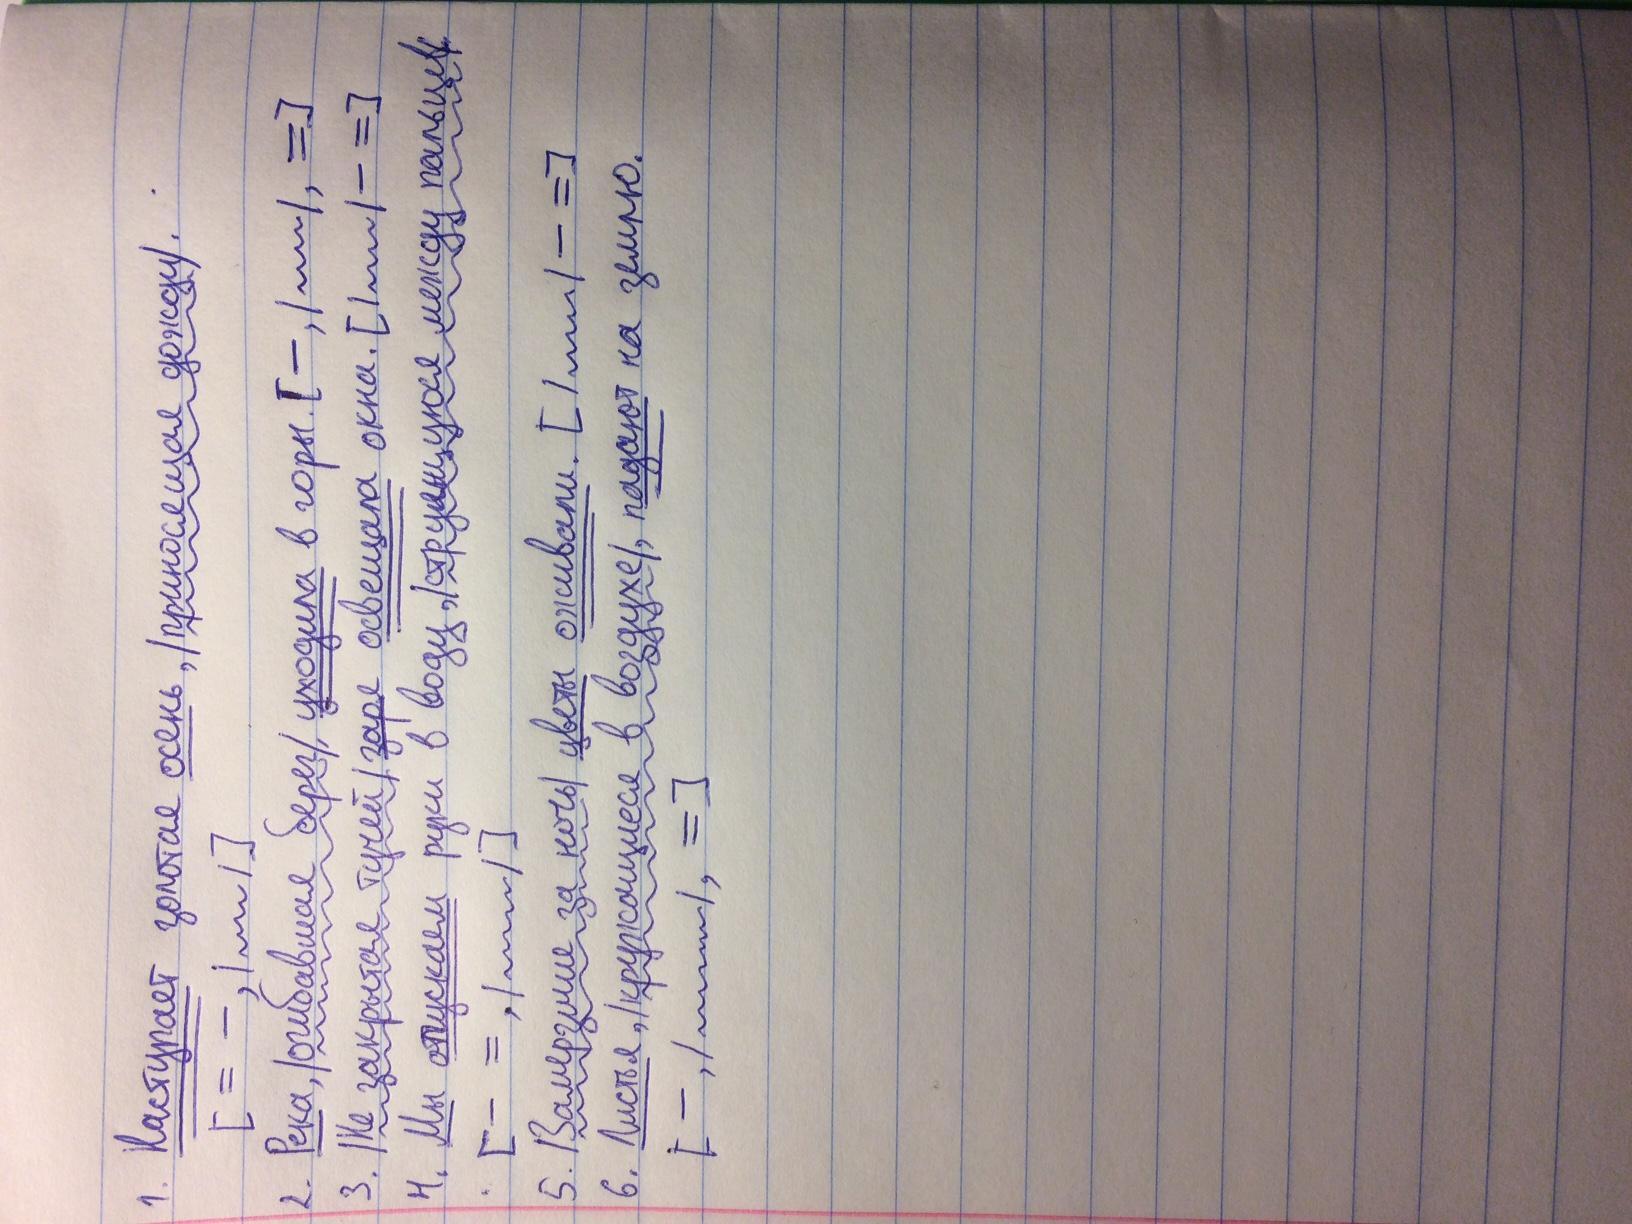 1. Наступает золотая осень, /приносящая дожди/.
[= –, /﹏/]
2. Река, /огибавшая берег/, уходила в горы. [–, /﹏/, =]
3. /Не закрытая тучей/ заря освещала окна. [/﹏/ – =]
4. Мы опускаем руки в воду, /струящуюся между пальцев/.
[– =, /﹏/]
5. /Замерзшие за ночь/ цветы оживали. [/﹏/ – =]
6. Листья, /кружащиеся в воздухе/, падают на землю.
[–, /﹏/, =]